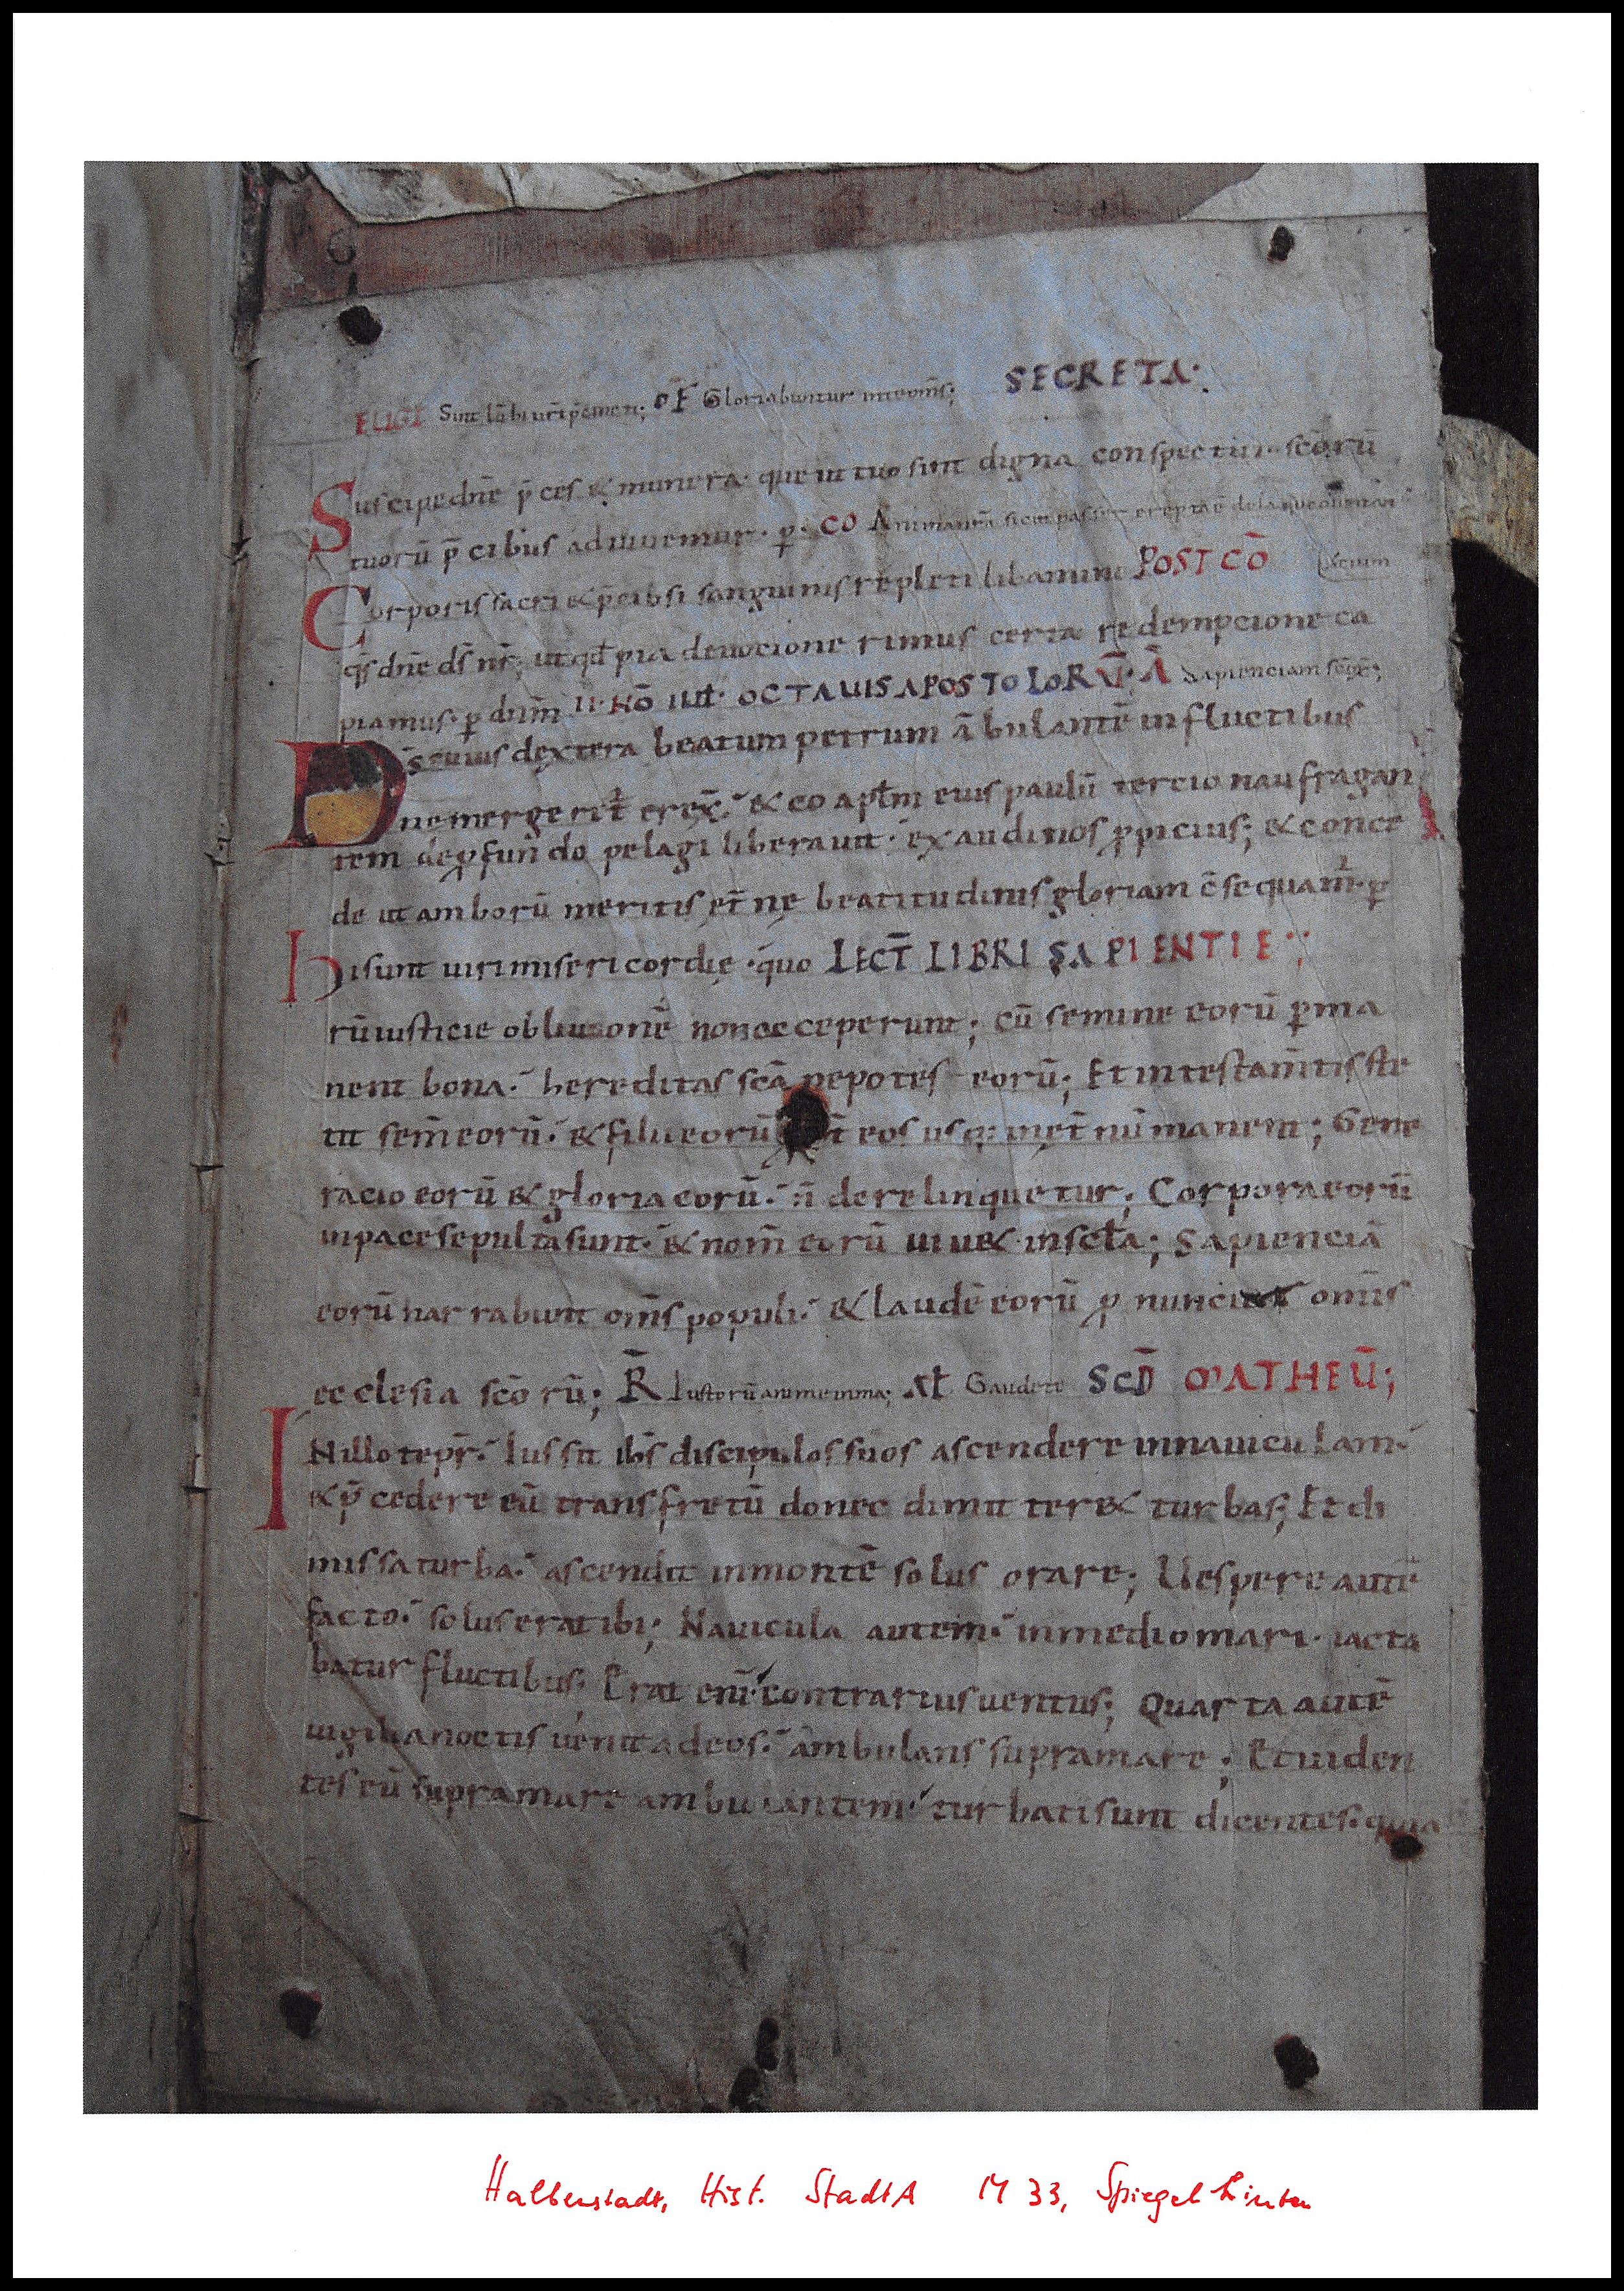 EUGI Sint lūbi ur̄i p̄cincti; OF Gl̄oriabuntur in te om̄s; SECRETA.
Suscipe dn̄e p̄ces & munera. que ut tuo sint digna conspectui. sc̄orū
tuorū p̄cibus adiuuemur. p̲. CŌ Anima nr̄a sicut passer erepta ē de laqueo uenan
Corporis sacri & p̄ciosi sanguinis repleti libamine POST CŌ tcium
qs̄ dn̄e ds̄ nr̄; ut qd̄ pia deuocione gerimus certa redempcione ca
piamus. p̲ dn̄m II. NŌ IUL. OCTAUIS APOSTOLORŪ. Ā Sapienciam sc̄orē;
Ds̄ cuius dextera beatum petrum ābulantē in fluctibus
ne mergeret᷑ erex̄. & coap̄tm eius paulū tercio naufragan
tem de p̲fundo pelagi liberauit. exaudi nos p̲picius; & conce
de ut amborū meritis et̄ne beatitudinis gloriam c̄sequam᷑. p̲
Hi sunt uiri misericordie. quo LECT̄ LIBRI SAPIENTIE
rū iusticie obliuionē non acceperunt; cū semine eorū p̲ma
nent bona. hereditas sc̄a nepotes eorū; Et in testam̄tis ste
tit sem̄ eorū. & filii eorū eos usq; in et̄nū manent; Gene
racio eorū & gloria eorū. n̄ derelinquetur; Corpora eorū
in pace sepulta sunt. & nom̄ eorū uiu& in sc̄la; Sapienciā
eorū narrabunt om̄s populi. & laudē eorū p̲nunciet om̄is
ecclesia sc̄orū; R̄ Iustorū anime in ma; Al̄ Gaudete SCD̄ MATHEŪ;
IN illo tep̄r. Iussit ih̄s discipulos suos ascendere in nauiculam.
& p̄cedere eū trans fretū donec dimitter& turbas; Et di
missa turba. ascendit in montē solus orare; Uespere autē
facto. solus erat ibi; Nauicula autem. in medio mari. iacta
batur fluctibus; Erat eni᷑ contrarius uentus; Quarta autē
uigilia noctis uenit ad eos. ambulans supra mare; Et uiden
tes eū supra mare ambulantem. turbati sunt dicentes. quia
Halberstadt, Hist. StadtA M 33, Spiegel hinten